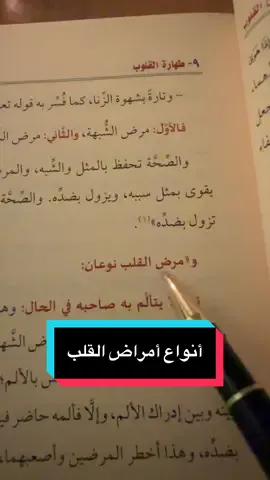 ٩- طهارة القلوب
- وتارةً بشهوة الزِّنا، كما فُسِّر به قوله تعـ
فالأوّل: مرض الشُّبهة، والثّاني: مرض
والصِّحَّة تحفظ بالمثل والشَّبه، والمر
يقوى بمثل سببه، ويزول بضدِّه. والصِّحَّة
تزول بضدِّه»(١).
و«مرض القلب نوعان:
يتألَّم به صاحبه في الحال: وهـ
أنواع أمراض القلب
بالألم؛
بينه وبين إدراك الألم، وإلَّا فألمه حاضر فيـ
بضدِّه، وهذا أخطر المرضين وأصعبهما،